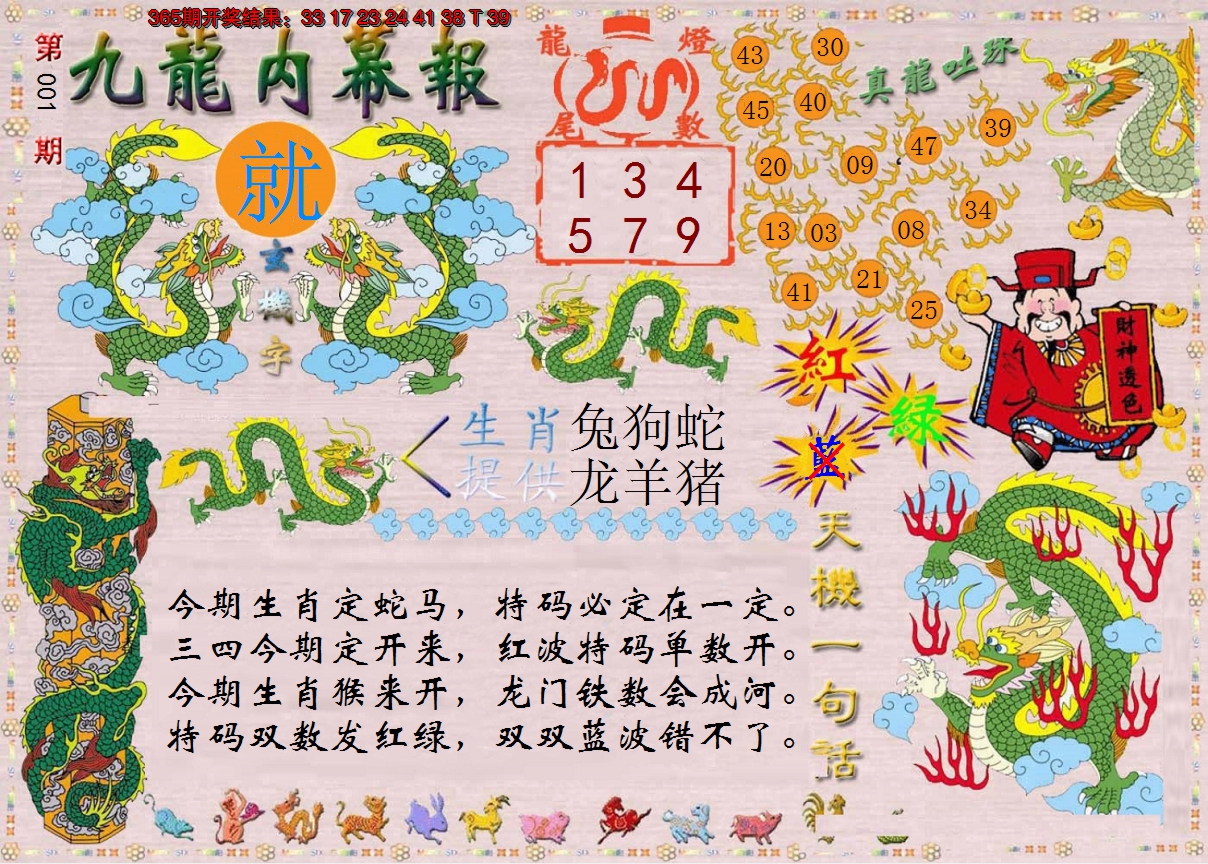 365期开奖结果：33 17 23 24 41 38 T 39
第001期
九龍内幕報
就
玄機字
龍燈尾數
1 3 4
5 7 9
真龍吐珠
43 30
45 40
47 39
20 09
34
13 03 08
41 21
25
財神透色
紅
绿
藍
生肖提供
兔狗蛇
龙羊猪
今期生肖定蛇马，特码必定在一定。
三四今期定开来，红波特码单数开。
今期生肖猴来开，龙门铁数会成河。
特码双数发红绿，双双蓝波错不了。
天機一句話